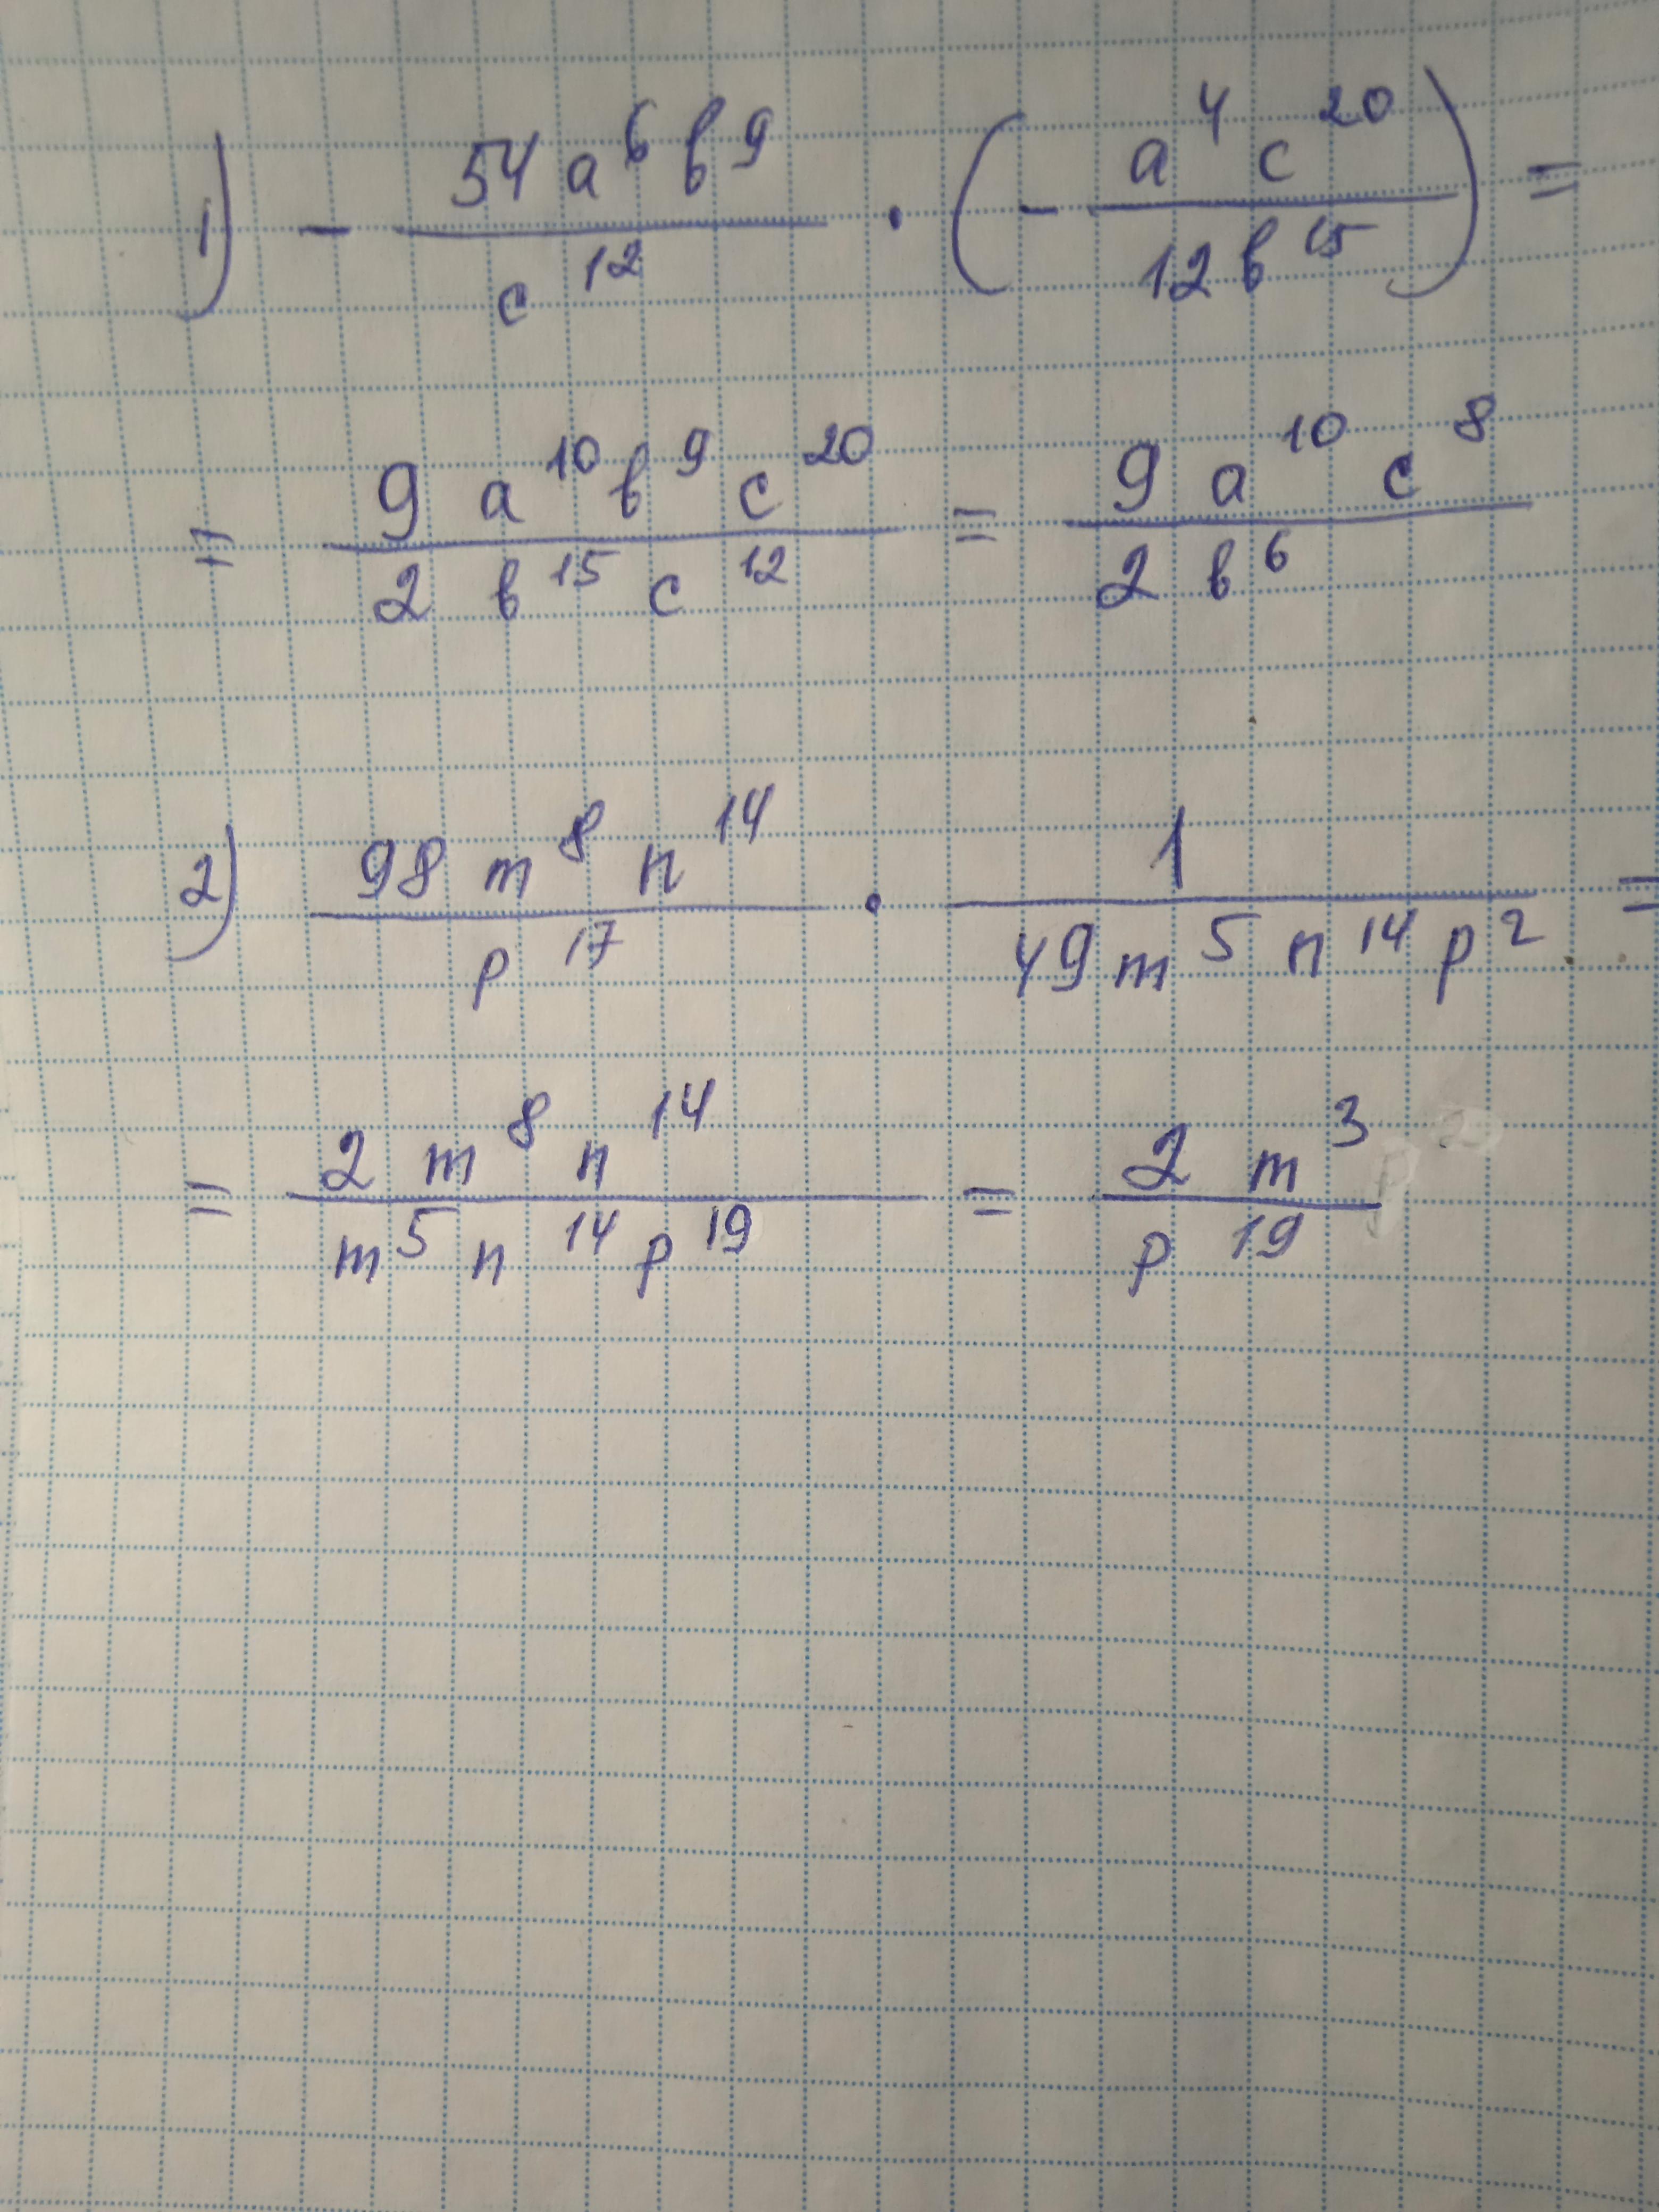 1) - 54a⁶b⁹ / c¹² · (- a⁴c²⁰ / 12b¹⁵) =
= 9a¹⁰b⁹c²⁰ / 2b¹⁵c¹² = 9a¹⁰c⁸ / 2b⁶
2) 98m⁸n¹⁴ / p¹⁷ · 1 / 49m⁵n¹⁴p² =
= 2m⁸n¹⁴ / m⁵n¹⁴p¹⁹ = 2m³ / p¹⁹